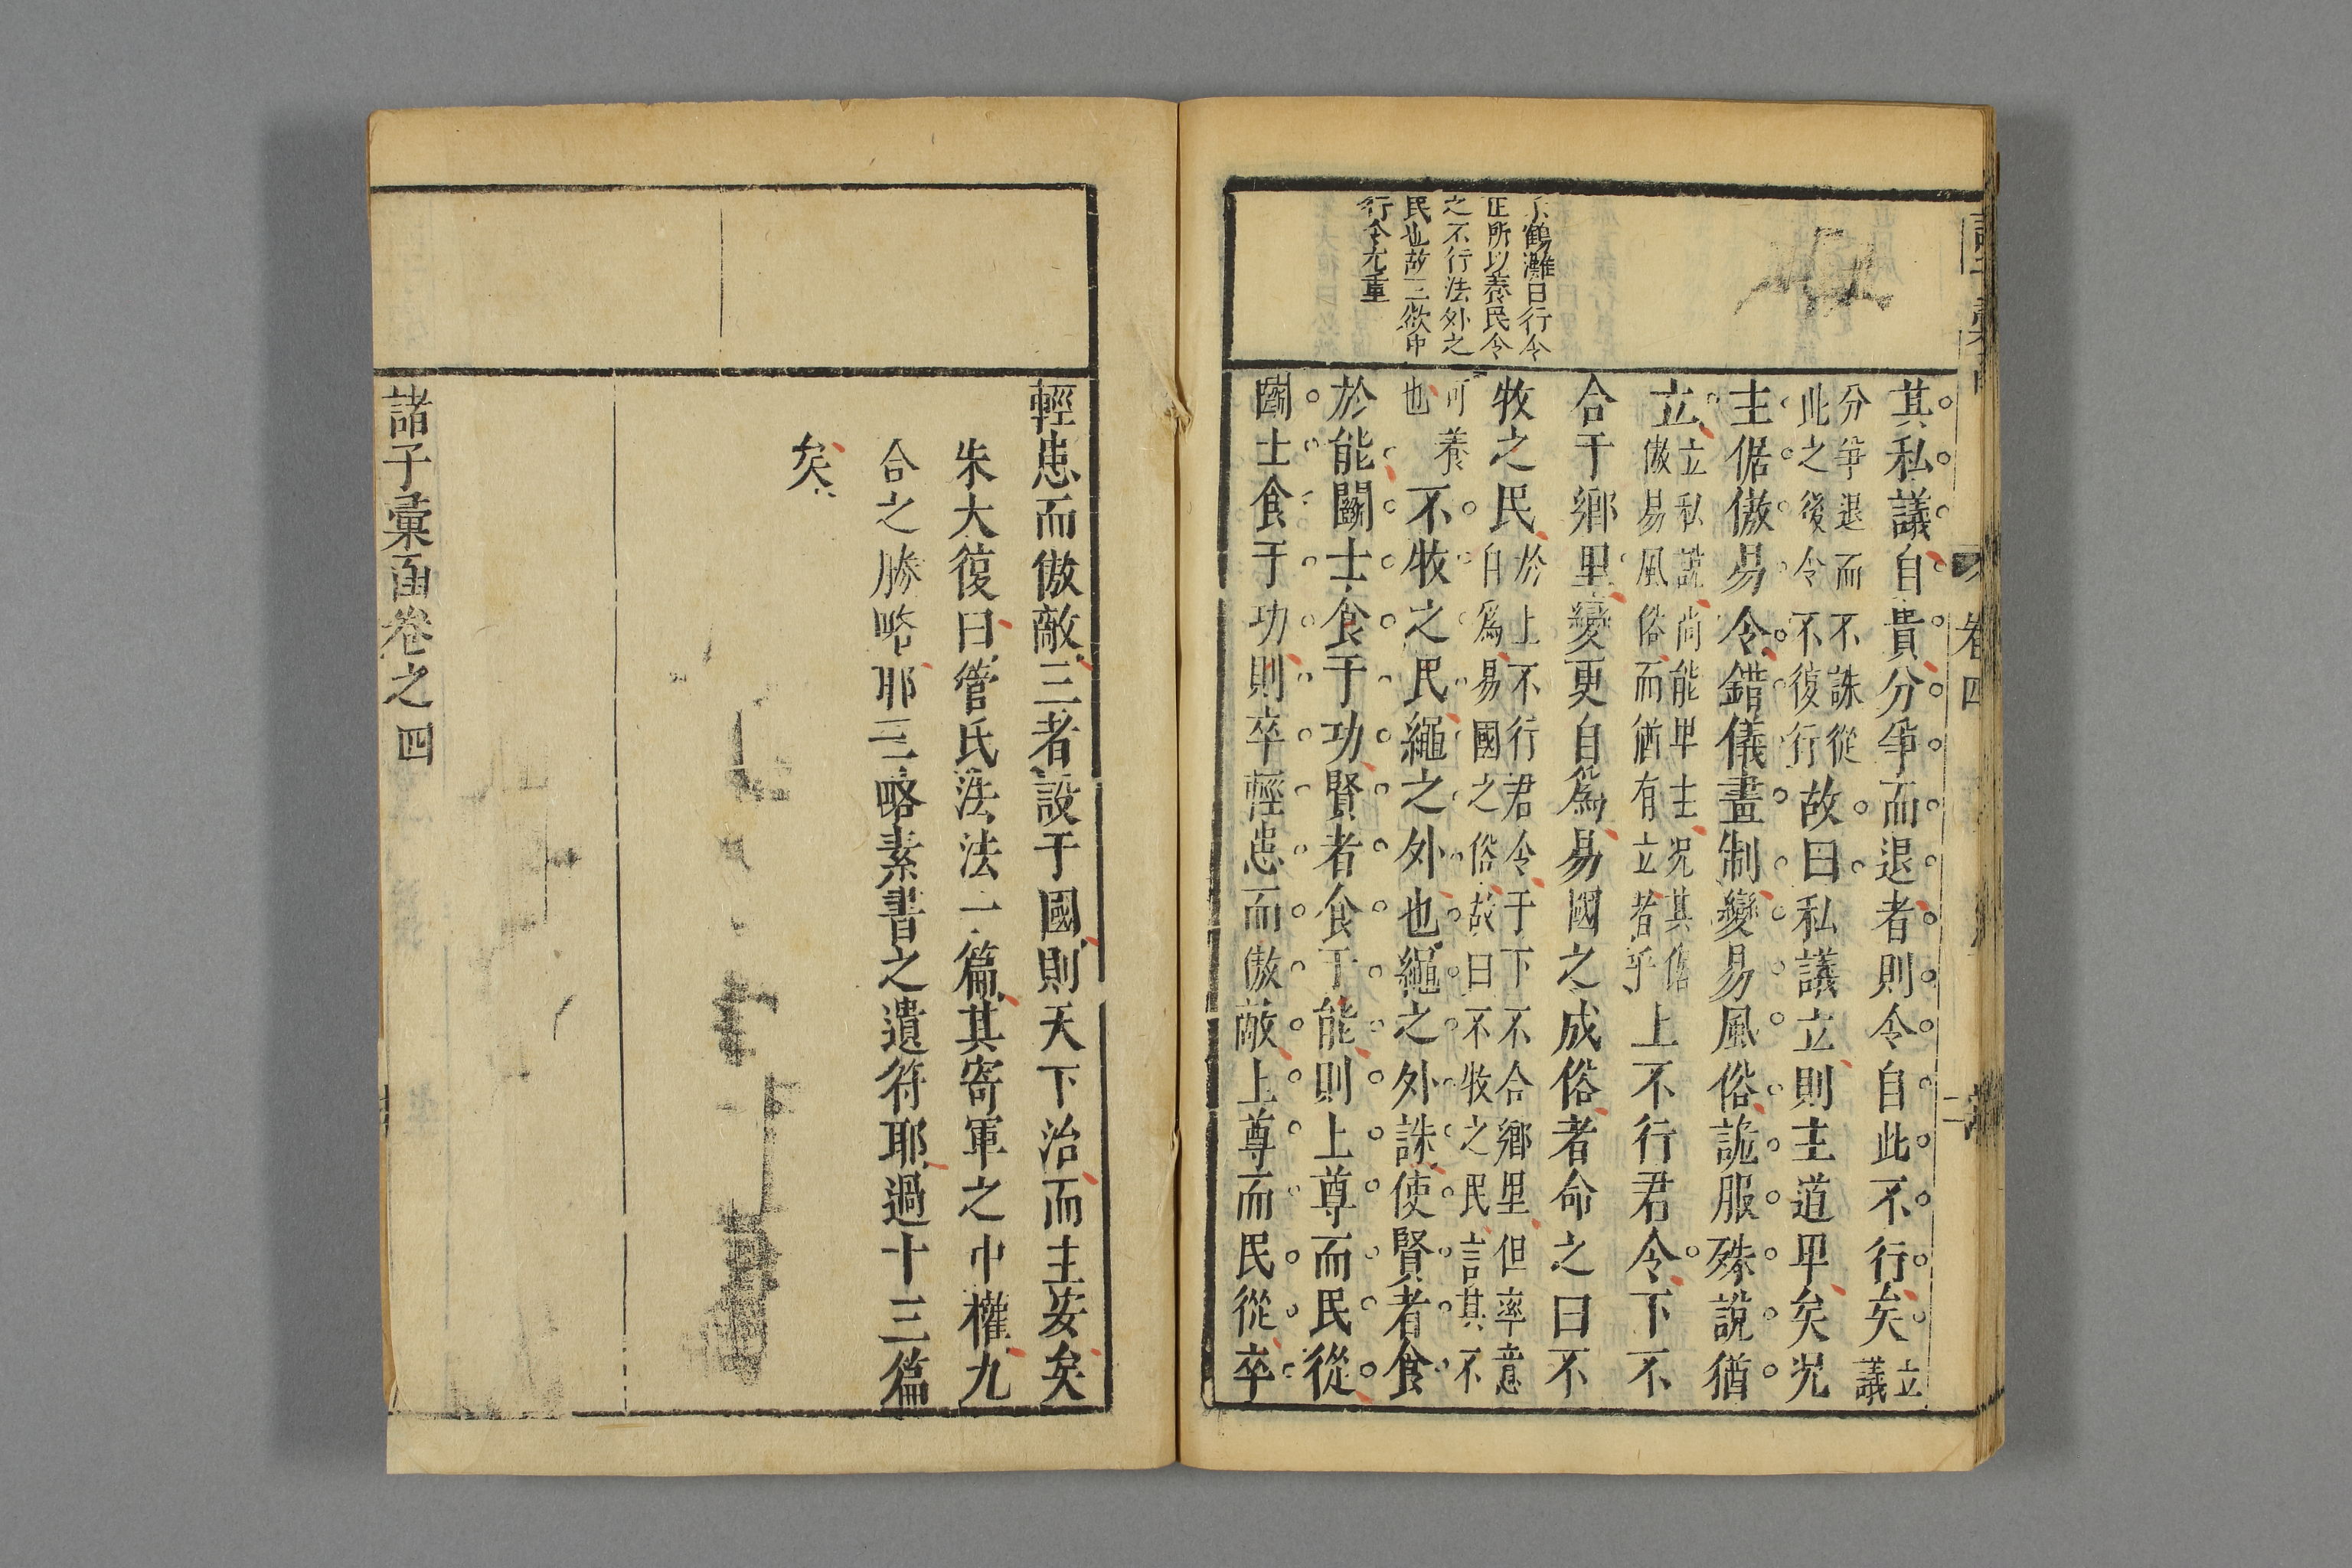 鶴灘曰行令
正所以養民令
之不行法外之
民也故三欲中
行令尤重
其私議自貴分爭而退者則令自此不行矣立議
分爭退而不誅從
此之後令不復行故曰私議立則主道卑矣況
主倨傲易令錯儀畫制變易風俗詭服殊說猶
立立私說尚能卑主況其倨
傲易風俗而猶有立者乎上不行君令下不
合于鄉里變更自爲易國之成俗者命之曰不
牧之民於上不行君令于下不合鄉里但率意
自爲易國之俗故曰不牧之民言其不
可養
也不牧之民繩之外也繩之外外誅使賢者食
於能鬭士食于功賢者食于能則上尊而民從
鬭士食于功則卒輕患而傲敵上尊而民從卒
卷四
二
輕患而傲敵三者設于國則天下治而主安矣
朱大復曰管氏法法一篇其寄軍之中權九
合之勝略耶三略素書之遺符耶過十三篇
矣
諸子彙函卷之四